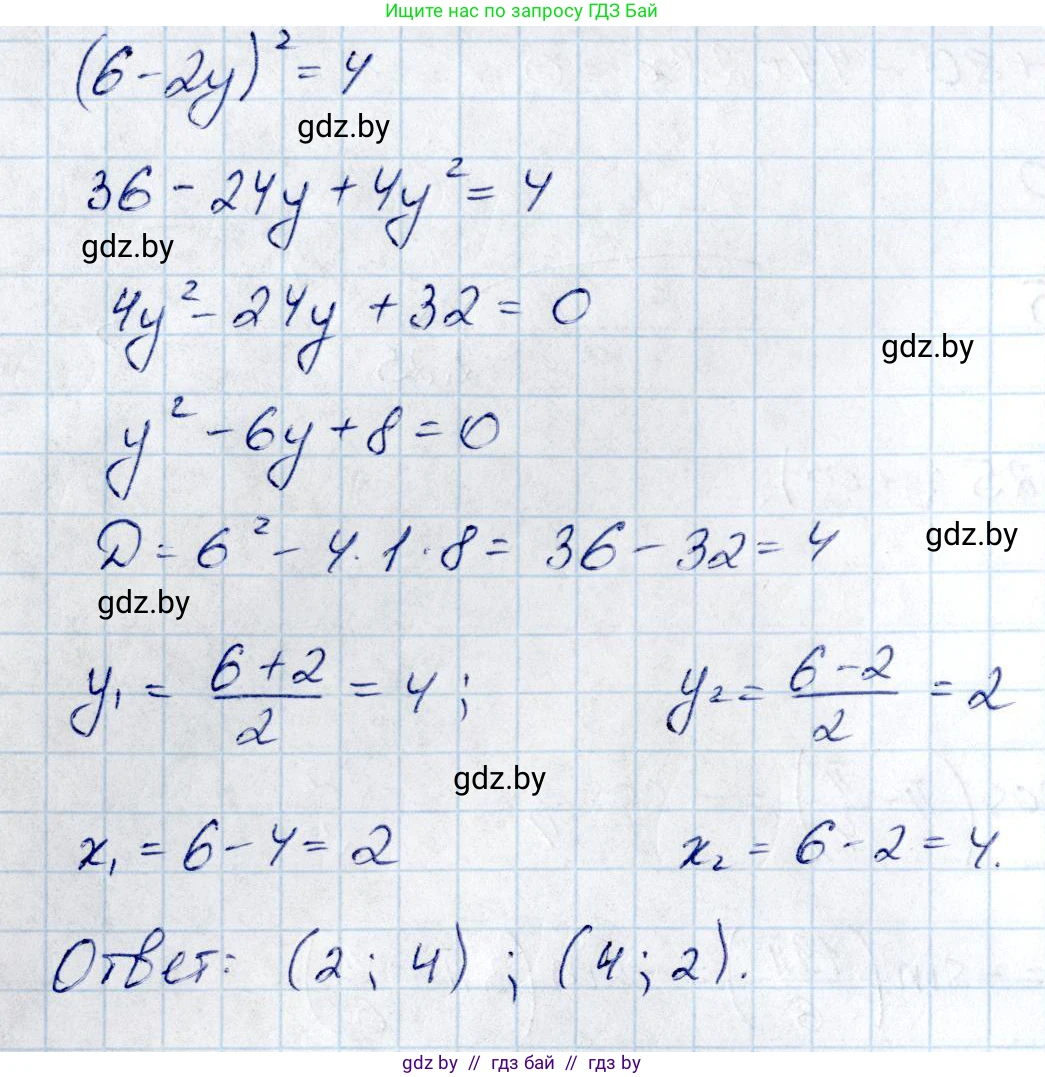 Ищите нас по запросу ГДЗ Бай
(6-2y)² = 4
gdz.by
36 - 24y + 4y² = 4
gdz.by
4y² - 24y + 32 = 0
gdz.by
y² - 6y + 8 = 0
gdz.by
D = 6² - 4·1·8 = 36 - 32 = 4
gdz.by
y₁ = (6+2)/2 = 4; y₂ = (6-2)/2 = 2
gdz.by
x₁ = 6 - 4 = 2 x₂ = 6 - 2 = 4.
Ответ: (2; 4); (4; 2).
gdz.by // гдз бай // гдз by